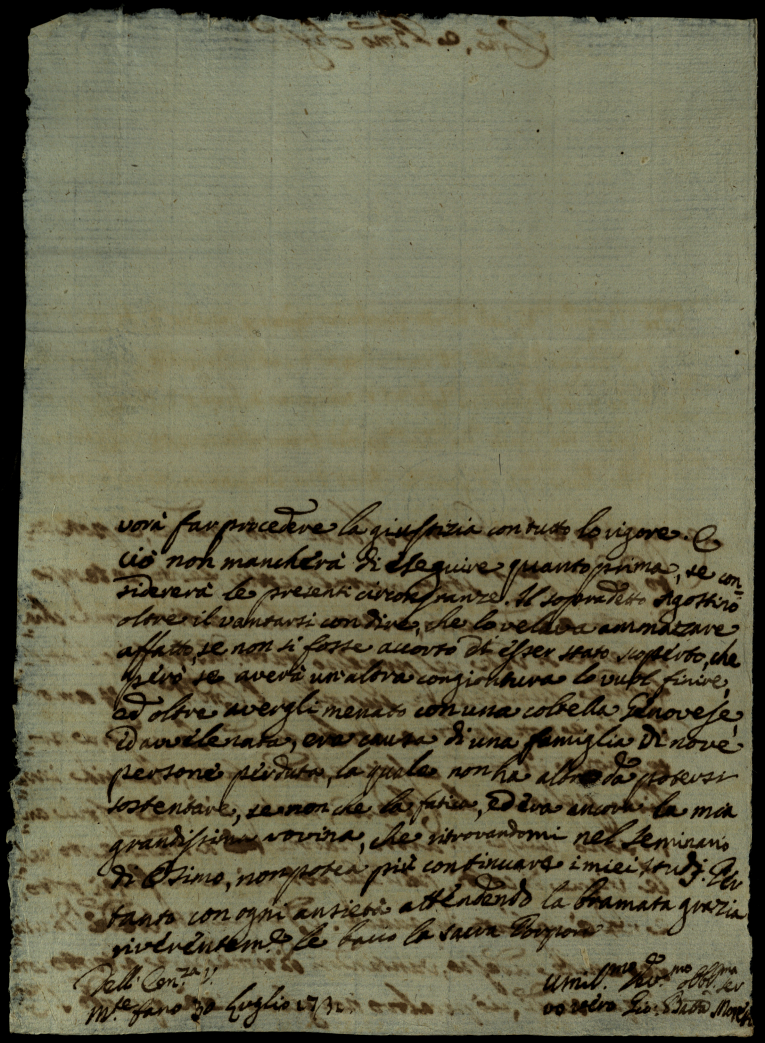 vorà far procedere la giustizia con tutto lo rigore. E
ciò non mancherà di eseguire quanto prima, se con=
sidererà le presenti circonstanze. Il sopradetto Agostino
oltre il vantarsi con dire, che lo voleva ammazzare
affatto, se non si fosse accorto di esser stato scoperto, che
però se averà un'altra congiontura lo vuol finire,
ed oltre avergli menato con una coltella Genovese,
ed avvelenata, era causa di una famiglia di nove
persone perduta, la quale non ha altro da potersi
sostentare, se non che la fatica, ed era ancora la mia
grandissima rovina, che ritrovandomi nel Seminario
di Osimo, non potea più continuare i miei studj. Per
tanto con ogni ansietà attendendo la bramata grazia
riverentem.e le bacio la sacra Porpora
Dell' Em.za V.
M.te fano 30 Luglio 173
Umil.mo Dev.mo Obbl.mo ser
vo vero Gio: Batta